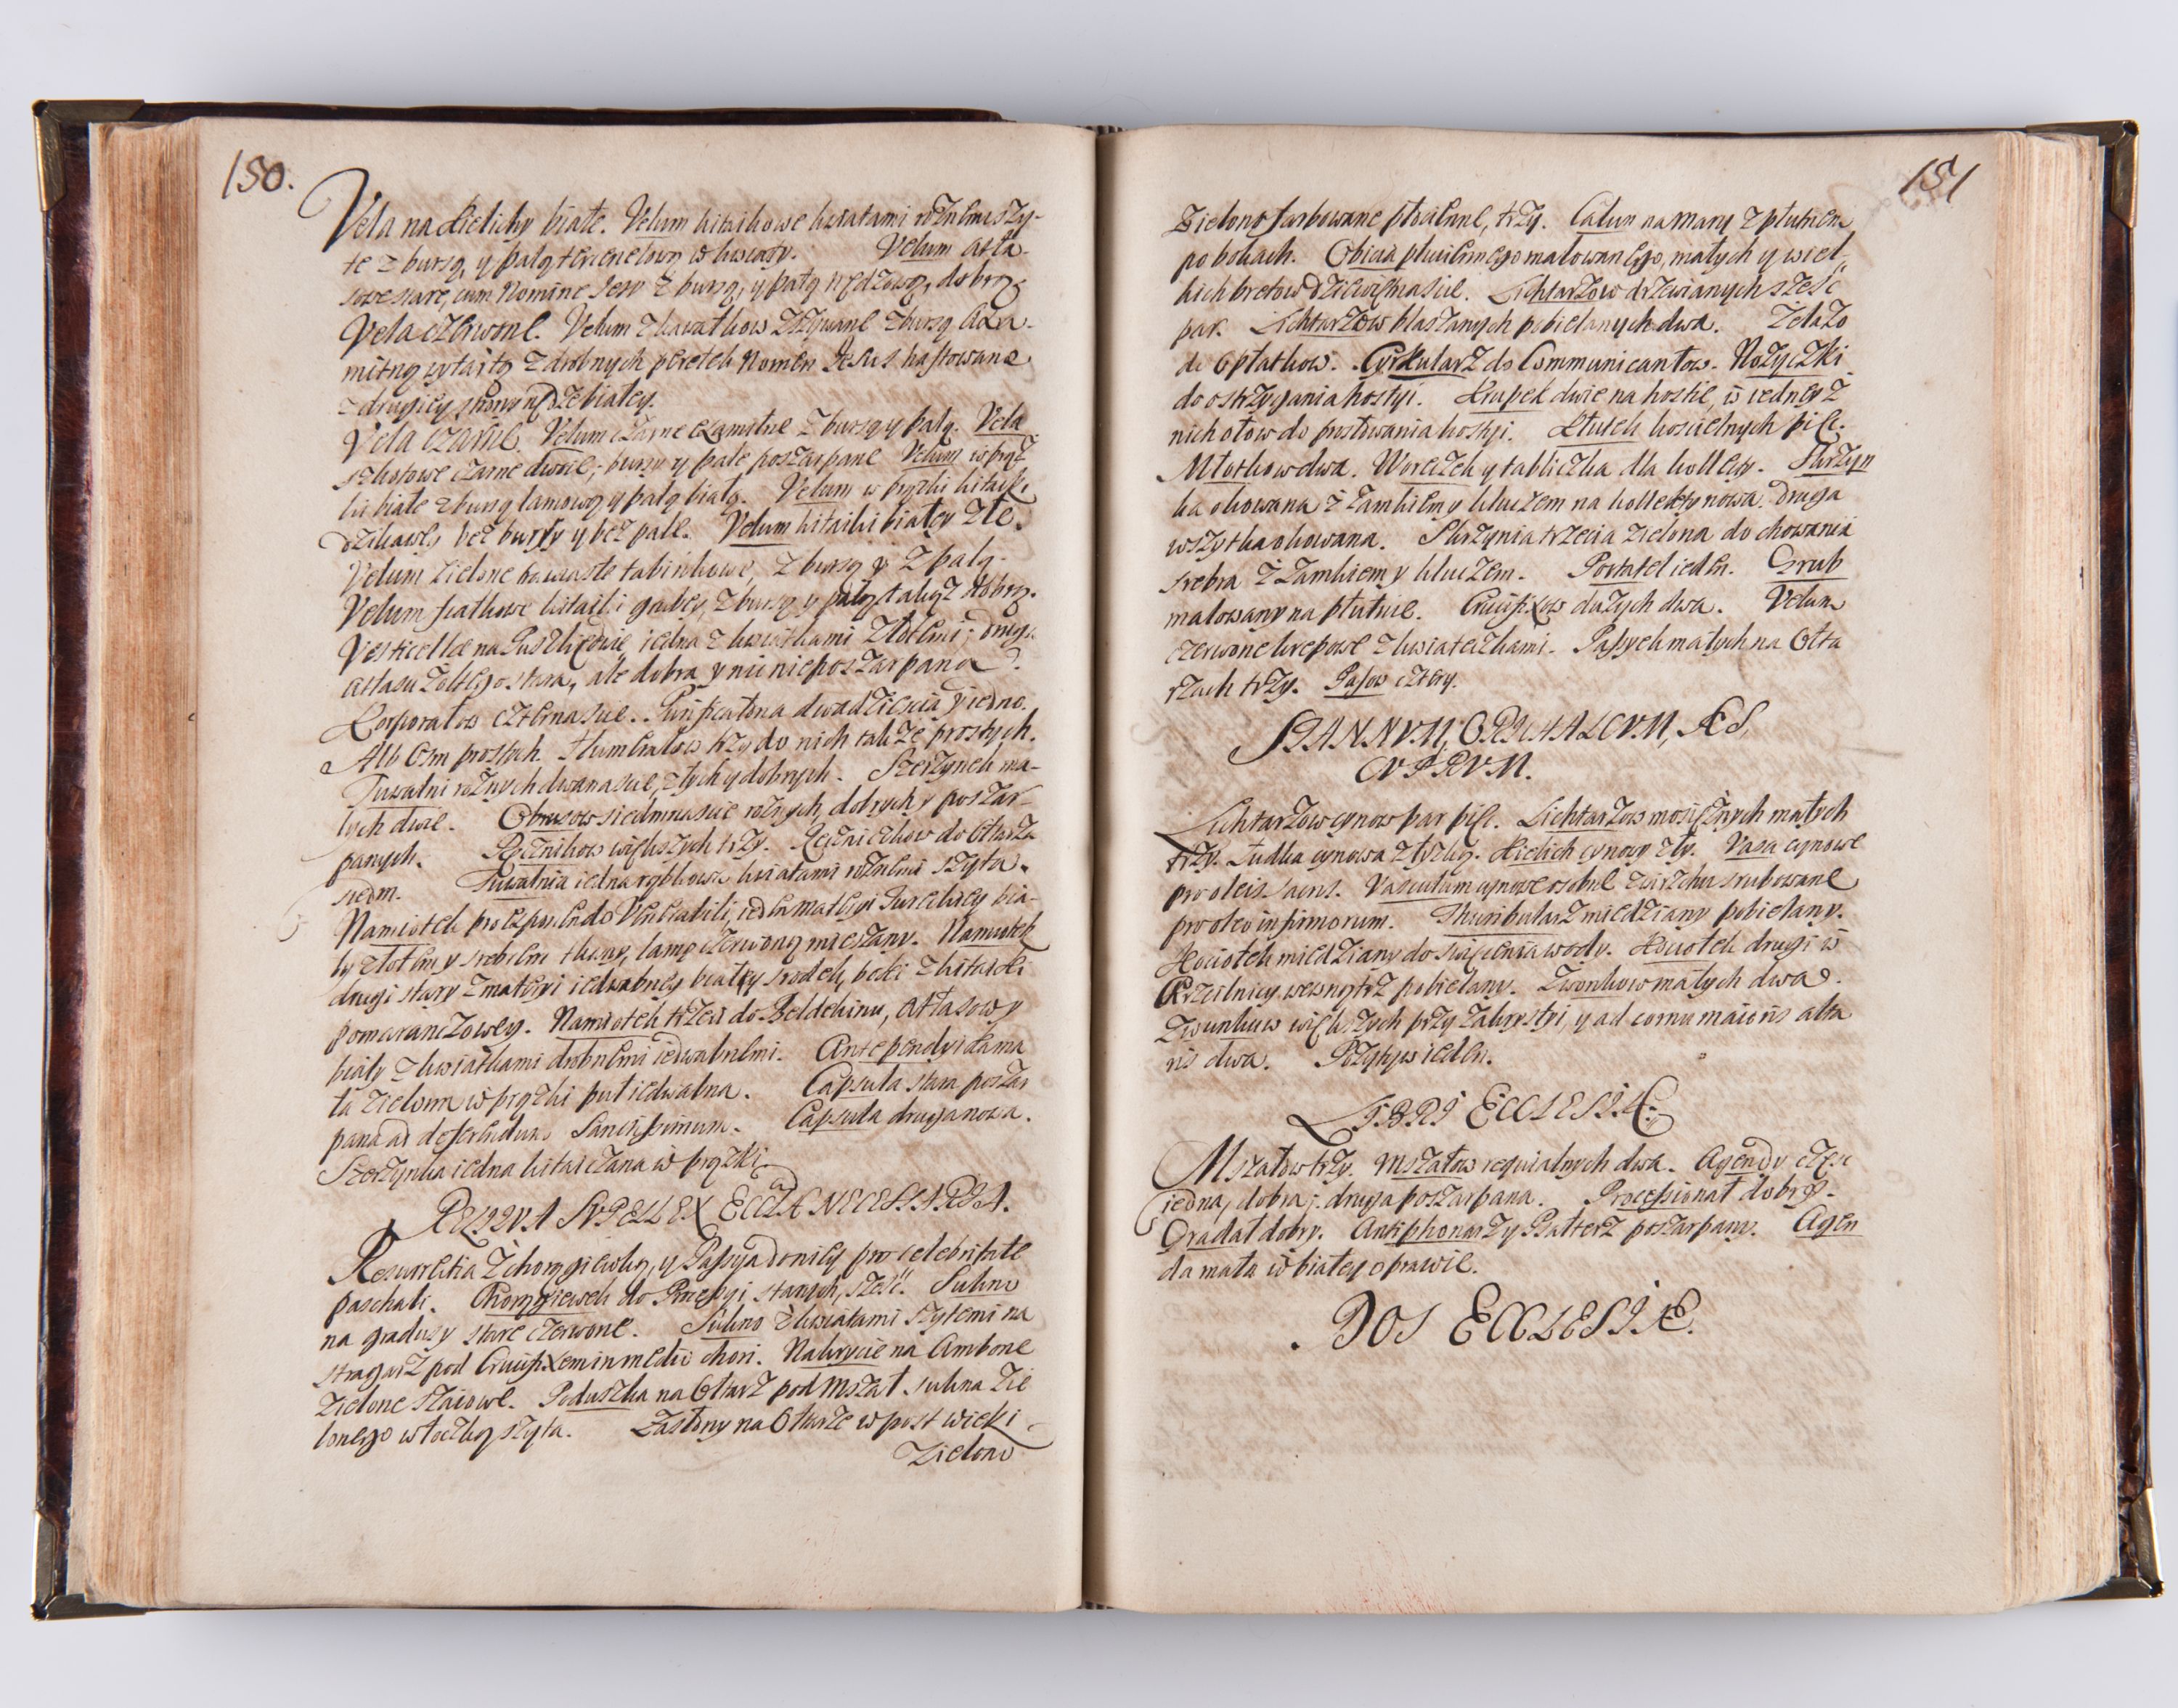 150.
Vela na Kielichy białe. Velum kitaikowe kwiatami roznemi szy-
te z bursą, y palą tercenelową w kwiaty. Velum atła-
sowe stare, cum Nomine Jesu z bursą, y palą rządzową, dobrą
Vela czerwone. Velum z kawałkow zszywane z bursą Axa-
mitną wytartą z drobnych perełek Nomen Jesus haftowane
z drugiey strony białey.
Vela czarne. Velum czarne axamitne z bursą y palą. Vela
czarne dwoie, bursy y pale poszarpane Velum w prąż
ki białe z bursą lamową y palą białą. Velum w prążki kitayki
bez bursy y bez pale. Velum kitaiki białey złe.
Velum zielone tabinkowe, z bursą y z palą.
Velum fiałkowe kitaiki gabey, z bursą y palą takąż dobrą.
Vesticellae na Puszkę dwie, iedna z kwiatkami złotemi; druga
atłasu żołtego stara, ale dobra y nienieposzarpana
Korporałow czternascie. Purificatoria dwadziescia y iedno.
Alb osm prostych. Humerałow trzy do nich także prostych.
Tuwalni roznych dwanascie, złych y dobrych. Szerzynek ma-
łych dwie. Obrusow siedmnascie roznych, dobrych y poszar-
panych. Ręcznikow większych trzy. Ręczniczkow do Ołtarza
siedm. Tuwalnia iedna rąbkowa kwiatami roznemi szyta.
Namiotek pro exponendo Venerabili, ieden materyi Tureckiey bia-
ły złotem y srebrem tkany, lamą czerwoną mieszany. Namiotek
drugi stary z materyi iedwabney białey srodek, boki z kitaiki
pomaranczowey. Namiotek trzeci do Baldekinu, Atłasowy
biały z kwiatkami drobnemi iedwabnemi. Antependyi dama
ta zielona w prążki puł iedwabna. Capsula stara poszar
pana ad deferendum Sanctissimum. Capsula druga nowa.
Szerzynka iedna kitaiczana w prążki
RELIQVA SVPELLEX ECCLÆ NECESSARIA.
Resurrectia z chorągiewką, y Passya do niey pro celebritate
paschali. Chorągiewek do Processyi starych, sześć. Sukno
na gradusy stare czerwone. Sukno z kwiatami szytemi na
stragarz pod Crucifixem in medio chori. Nakrycie na Ambone
zielone szaiowe. Poduszka na Ołtarz pod Mszał sukna zie
lonego włoczką szyta. Zasłony na Ołtarze w post wielki
Zielono
151
Zielono farbowane płocienne, trzy. Całun na mary z płutnem
po bokach. Obicia płuciennego malowanego, małych y wiel-
kich bretow dziewiętnascie. Lichtarzow drzewianych sześć
par. Lichtarzow blaszanych pobielanych dwa. Żelazo
do Opłatkow. Cyrkularz do Communicantow. Nożyczki
do ostrzygania hostyi. Krupek dwie na hostie, w iedney z
nich ołow do prostwania hostyi. Kluczek koscielnych pięć.
Młotkow dwa. Woreczek y tabliczka dla kollekty. Skrzyn
ka okowana z zamkiem y kluczem na kollektę nowa. Druga
wszytka okowana. Skrzynia trzecia zielona do chowania
srebra z zamkiem y kluczem. Portatel ieden. Grub
malowany na płutnie. Crucifixow dużych dwa. Velum
czerwone krepowe z kwiateczkami. Passyek małych na Ołta
rzach trzy. Pasow cztery.
STANNVM, ORICHALCVM, ÆS,
CVPRVM.
Lichtarzow cynow par pięć. Lichtarzow mosiężnych małych
trzy. Łudka cynowa z łyszką. Kielich cynowy zły. Vasa cynowe
pro oleis sacris. Vasculum cynowe osobne zwierzchu srubowane
pro oleo infirmorum. Thuribularz miedziany pobielany.
Kociołek miedziany do swięcenia wody. Kociołek drugi w
Krzcilnicy wewnątrz pobielany. Dzwonkow małych dwa.
Dzwonkow większych przy Zakrystyi, y ad cornu maioris alta
ris dwa. Pozytyw ieden.
LIBRI ECCLESIÆ.
Mszałow trzy. Mszałow requialnych dwa. Agendy częsc
iedna, dobra; druga poszarpana. Processionał dobry.
Graduał dobry. Antiphonarz y Psałterz poszarpany. Agen
da mała w białey oprawie.
DOS ECCLESIÆ.